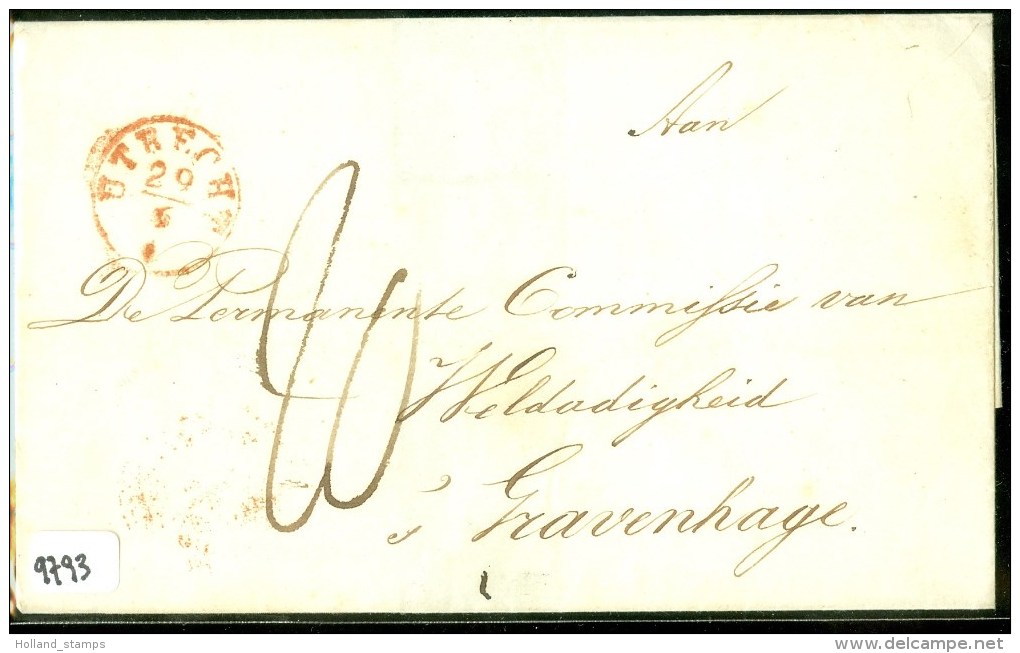 Aan
UTRECHT
29
5
De Permanente Commissie van
Weldadigheid
's Gravenhage.
9793
Holland_stamps
www.delcampe.net